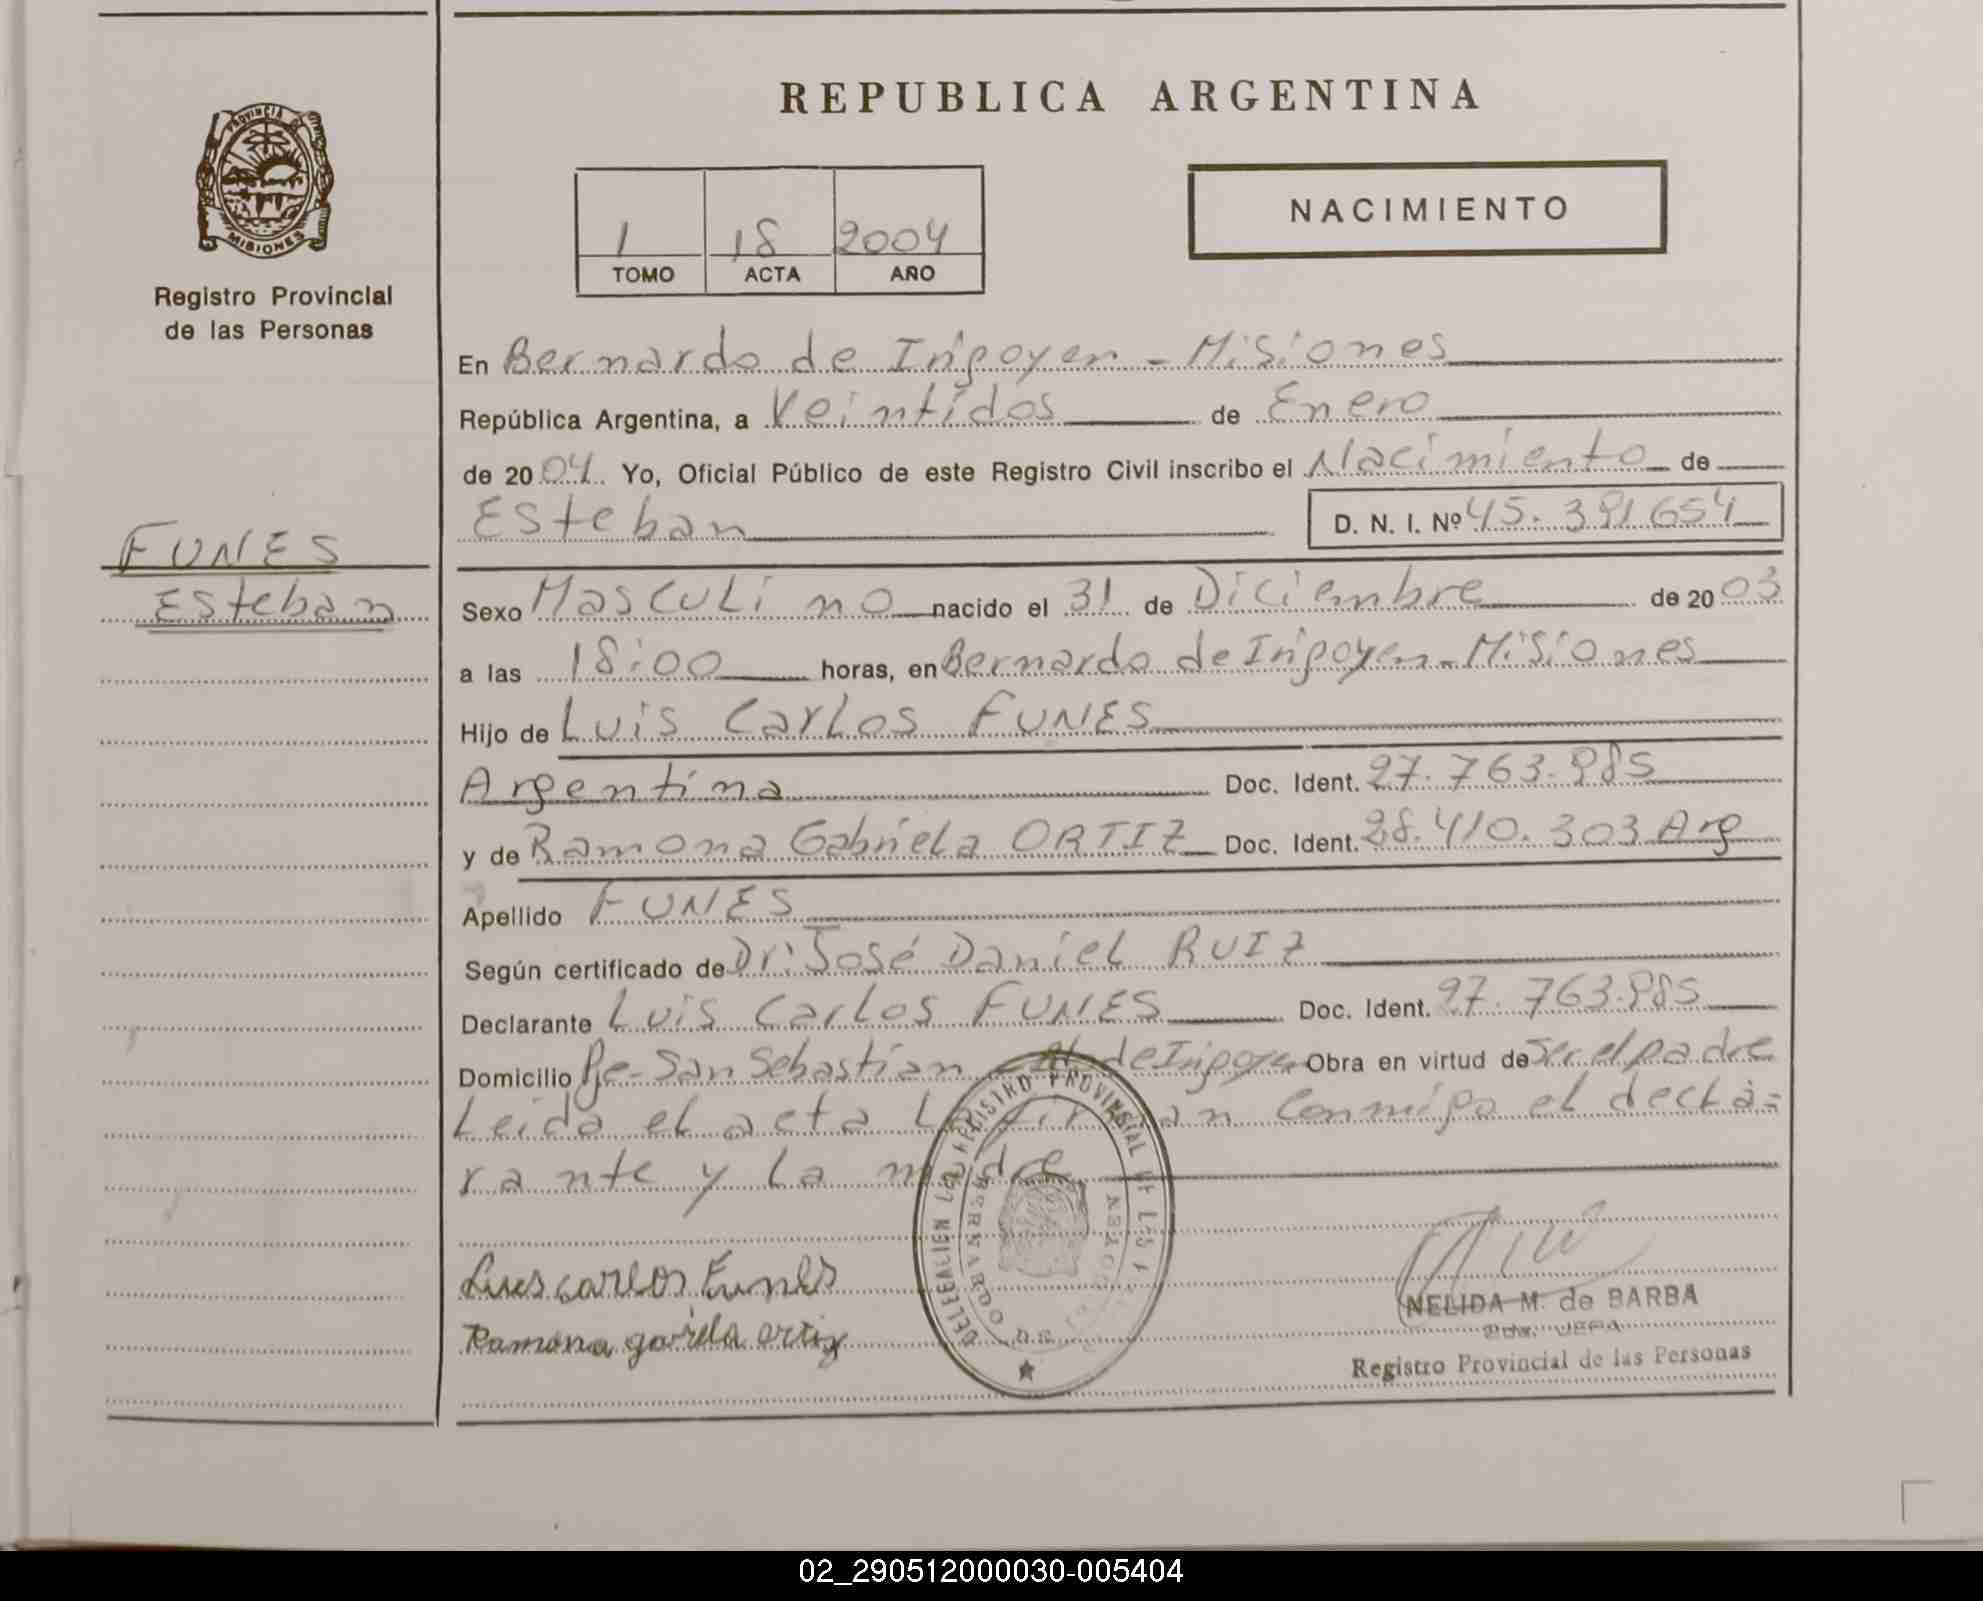 REPUBLICA ARGENTINA
PROVINCIA DE
MISIONES
Registro Provincial
de las Personas
1 18 2004
TOMO ACTA AÑO
NACIMIENTO
En Bernardo de Irigoyen - Misiones
República Argentina, a Veintidos de Enero
de 2004. Yo, Oficial Público de este Registro Civil inscribo el Nacimiento de
Esteban D. N. I. Nº 45.391654
FUNES
Esteban
Sexo Masculino nacido el 31 de Diciembre de 2003
a las 18:00 horas, en Bernardo de Irigoyen - Misiones
Hijo de Luis Carlos FUNES
Argentina Doc. Ident. 27.763.985
y de Ramona Gabriela ORTIZ Doc. Ident. 28.410.303 Arg
Apellido FUNES
Según certificado de Dr: José Daniel RUIZ
Declarante Luis Carlos FUNES Doc. Ident. 27.763.985
Domicilio San Sebastián de Irigoyen Obra en virtud de Ser el padre
Leida el acta La firman Conmigo el decla=
rante y La madre
Luis carlos Funes
Ramona gavriela ortiz
REGISTRO PROVINCIAL DE LAS
BERNARDO DE
NELIDA M. de BARBA
Registro Provincial de las Personas
02_290512000030-005404